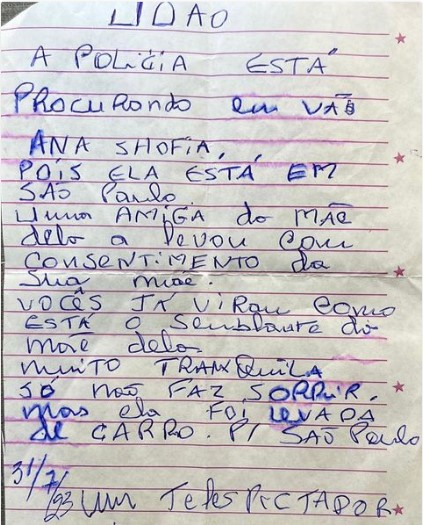 LIDAO
A POLiCiA ESTÁ
PROCURANDO em VÃO
ANA SHOFIA,
POIS ELA ESTÁ EM
SÃO Paulo
Uma AMIGA da MÃE
dela a levou Com
CONSENTIMENTO da
Sua mãe.
VOCÊS JÁ VIRAM como
ESTÁ o Semblante da
mãe dela
muito TRANQuilA
SÓ não FAZ SORRIR,
mas ela FOI LEVADA
de CARRO. P/ SÃO Paulo
31/7/23 Um TeLesPECTADOR